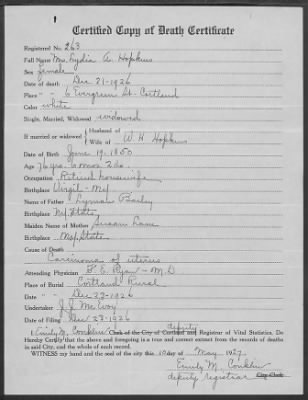 Certified Copy of Death Certificate
Registered No. 263
Full Name Mrs. Lydia A. Hopkins
Sex female
Date of death Dec 21-1926
Place " " 6 Evergreen St. Cortland
Color white
Single, Married, Widowed widowed
Husband of
If married or widowed
Wife of W. H. Hopkins
Date of Birth June 19, 1850
Age 76 yrs. 6 mos 2 da.
Occupation Retired housewife
Birthplace Virgil - 
Name of Father Lyman
Birthplace State
Maiden Name of Mother Susan Lane
Birthplace State
Cause of Death
Carcinoma of uterus
Attending Physician F. E. Ryan - M.D.
Place of Burial Cortland Rural
Date " " Dec 23-1926
Undertaker J. J. McEvoy
Date of Filing Dec 23-1926
I, Emily M. Conklin Clerk of the City of Cortland and deputy Registrar of Vital Statistics. Do
Hereby Certify that the above and foregoing is a true and correct extract from the records of deaths
in said City, and the whole of such record.
WITNESS my hand and the seal of the city this 10 day of May 1927.
Emily M. Conklin
deputy registrar City Clerk